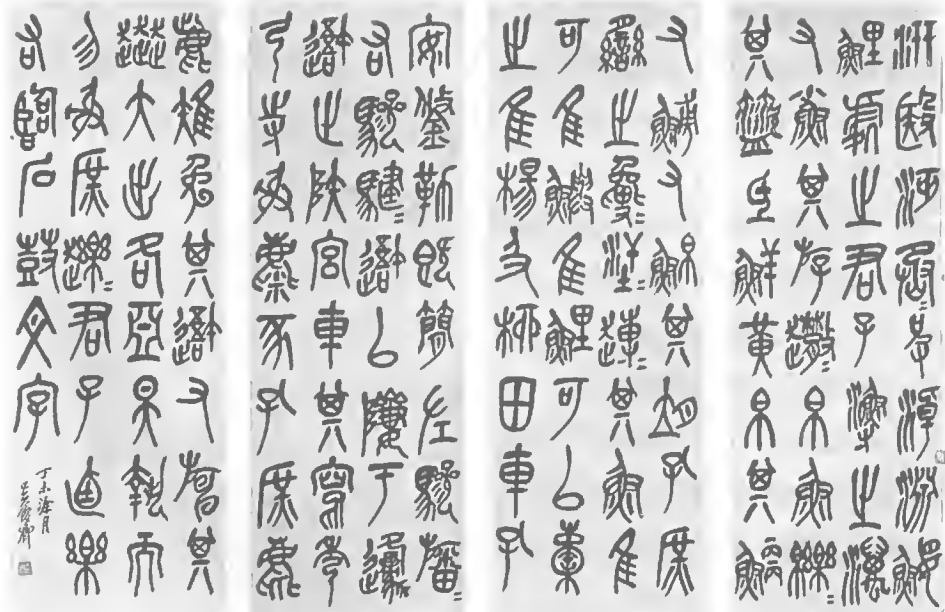 汧殹沔沔烝彼淖淵鰋
鯉處之君子漁之澫
又鯊其斿趣趣帛魚皪皪
其盜氐鮮黃帛其鯿
又鰟又鮊其胡孔庶
臠之毚毚汗汗趁趁其魚隹
可隹鱮隹鯉可以橐
之隹楊及柳田車孔
安鋚勒既簡左驂旛旛
右驂騝騝邍以隮于邍
邍止陝宮車其寫秀
弓寺射麋豕孔庶麀
鹿雉兔其邍又旃其
趩大出各亞昊執而
勿射庶趯趯君子逌樂
右臨石鼓文字
丁未涂月
吳俊卿